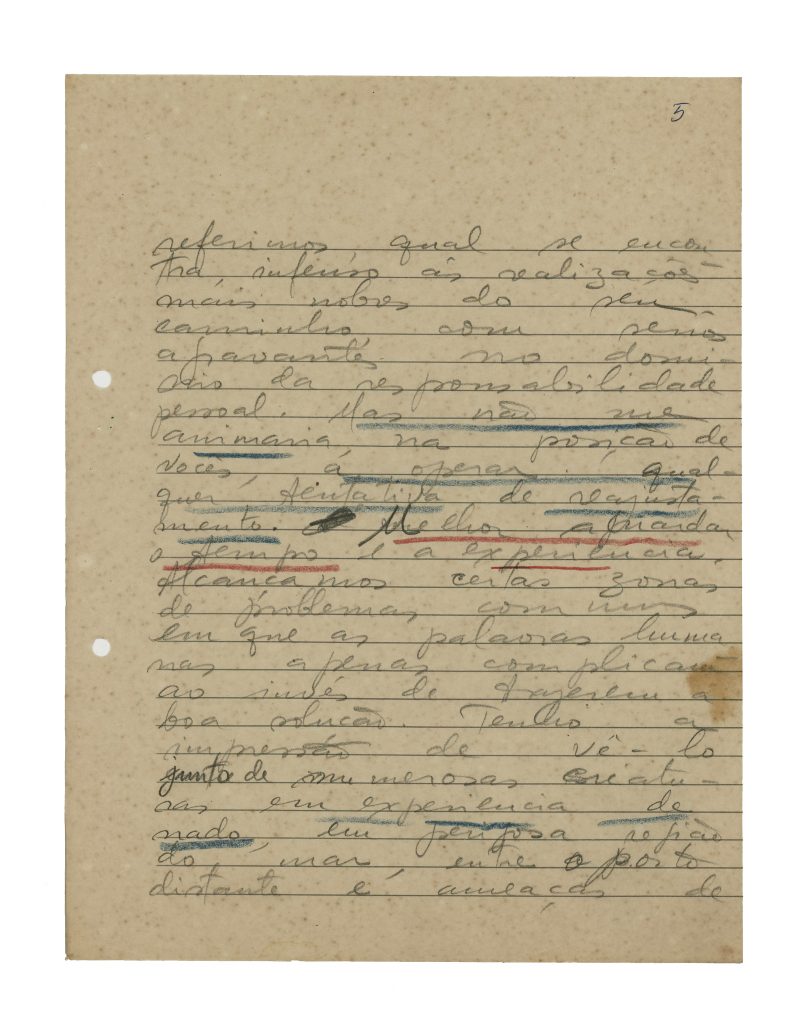 5
referimos qual se encon-
tra, infenso às realizações
mais nobres do seu
caminho com sérios
agravantes no domi-
nio da responsabilidade
pessoal. Mas não me
animaria, na posição de
vocês, á operar qual-
quer tentativa de reajusta-
mento. Melhor aguardar
o tempo e a experiencia.
Alcançamos certas zonas
de problemas comuns
em que as palavras huma
nas apenas complicam
ao invés de trazerem a
boa solução. Tenho a
impressão de vê-lo
junto de numerosas criatu-
ras em experiencia de
nado, em perigosa região
do mar, entre o porto
distante e ameaças de